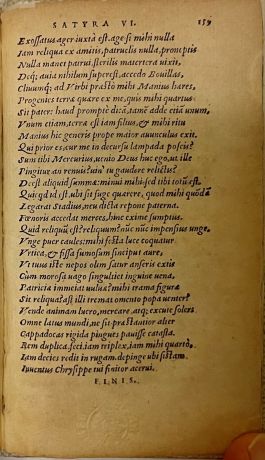 SATYRA VI. 159
Exossatus ager iuxta est. age si mihi nulla
Iam reliqua ex amitis, patruelis nulla, proneptis
Nulla manet patrui. sterilis matertera uixit,
Deq; auia nihilum superest. accedo Bouillas,
Cliuumq; ad Verbi præsto mihi Manius hæres,
Progenies terræ quære ex me, quis mihi quartus
Sit pater: haud promptè dicã, tamẽ adde etiã unum,
Vnum etiam, terræ est iam filius, & mihi ritu
Manius hic generis prope maior auunculus exit.
Qui prior es, cur me in decursu lampada poscis?
Sum tibi Mercurius, uenio Deus huc ego, ut ille
Pingitur. an renuis? uin' tu gaudere relictis?
Deest aliquid summæ: minui mihi: sed tibi totũ est.
Quicquid id est. ubi sit fuge quærere, quod mihi quõdã
Legarat Stadius, neu dicta repone paterna.
Fœnoris accedat merces, hinc exime sumptus.
Quid reliquũ est? reliquum? nũc nũc impensius unge,
Vnge puer caules: mihi festa luce coquatur
Vrtica, & fissa fumosum sinciput aure,
Vt tuus iste nepos olim satur anseris extis
Cum morosa uago singultiet inguine uena,
Patriciæ immeiat uuluæ? mihi trama figuræ
Sit reliqua? ast illi tremat omento popa uenter?
Vende animam lucro, mercare, atq; excute solers
Omne latus mundi, ne sit præstantior alter
Cappadocas rigida pingues pauisse catasta.
Rem duplica. feci, iam triplex, iam mihi quartò,
Iam decies redit in rugam. depinge ubi sistam.
Inuentus Chrysippe tui finitor acerui.
FINIS.